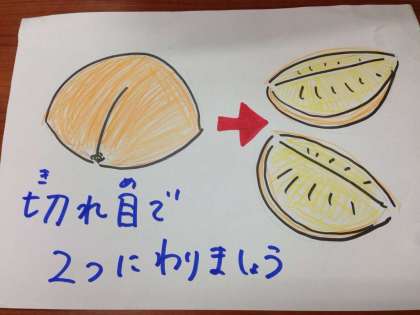 切れ目で
2つにわりましょう